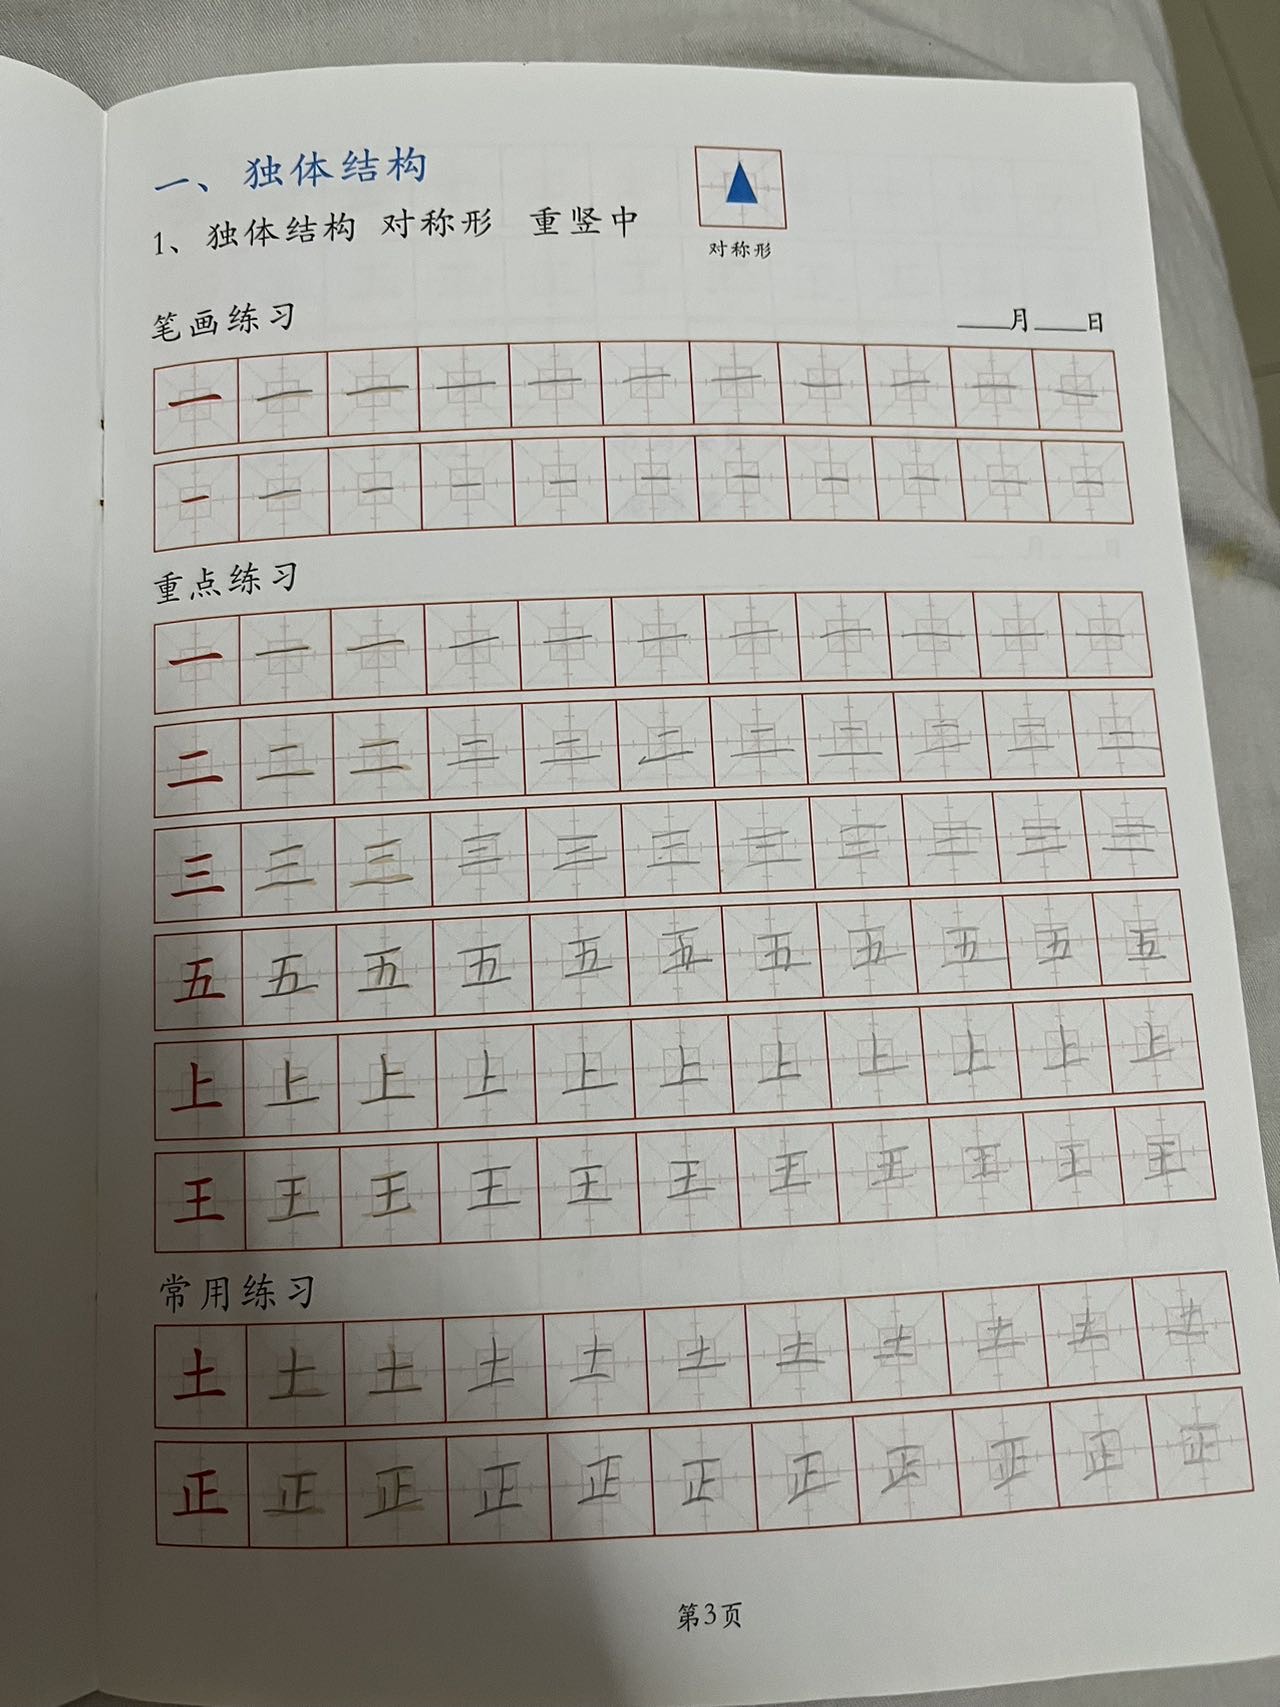 一、独体结构
1、独体结构 对称形 重竖中
对称形
笔画练习
____月____日
一 一 一 一 一 一 一 一 一 一 一
一 一 一 一 一 一 一 一 一 一 一
重点练习
一 一 一 一 一 一 一 一 一 一 一
二 二 二 二 二 二 二 二 二 二 二
三 三 三 三 三 三 三 三 三 三 三
五 五 五 五 五 五 五 五 五 五 五
上 上 上 上 上 上 上 上 上 上 上
王 王 王 王 王 王 王 王 王 王 王
常用练习
土 土 土 土 土 土 土 土 土 土 土
正 正 正 正 正 正 正 正 正 正 正
第3页